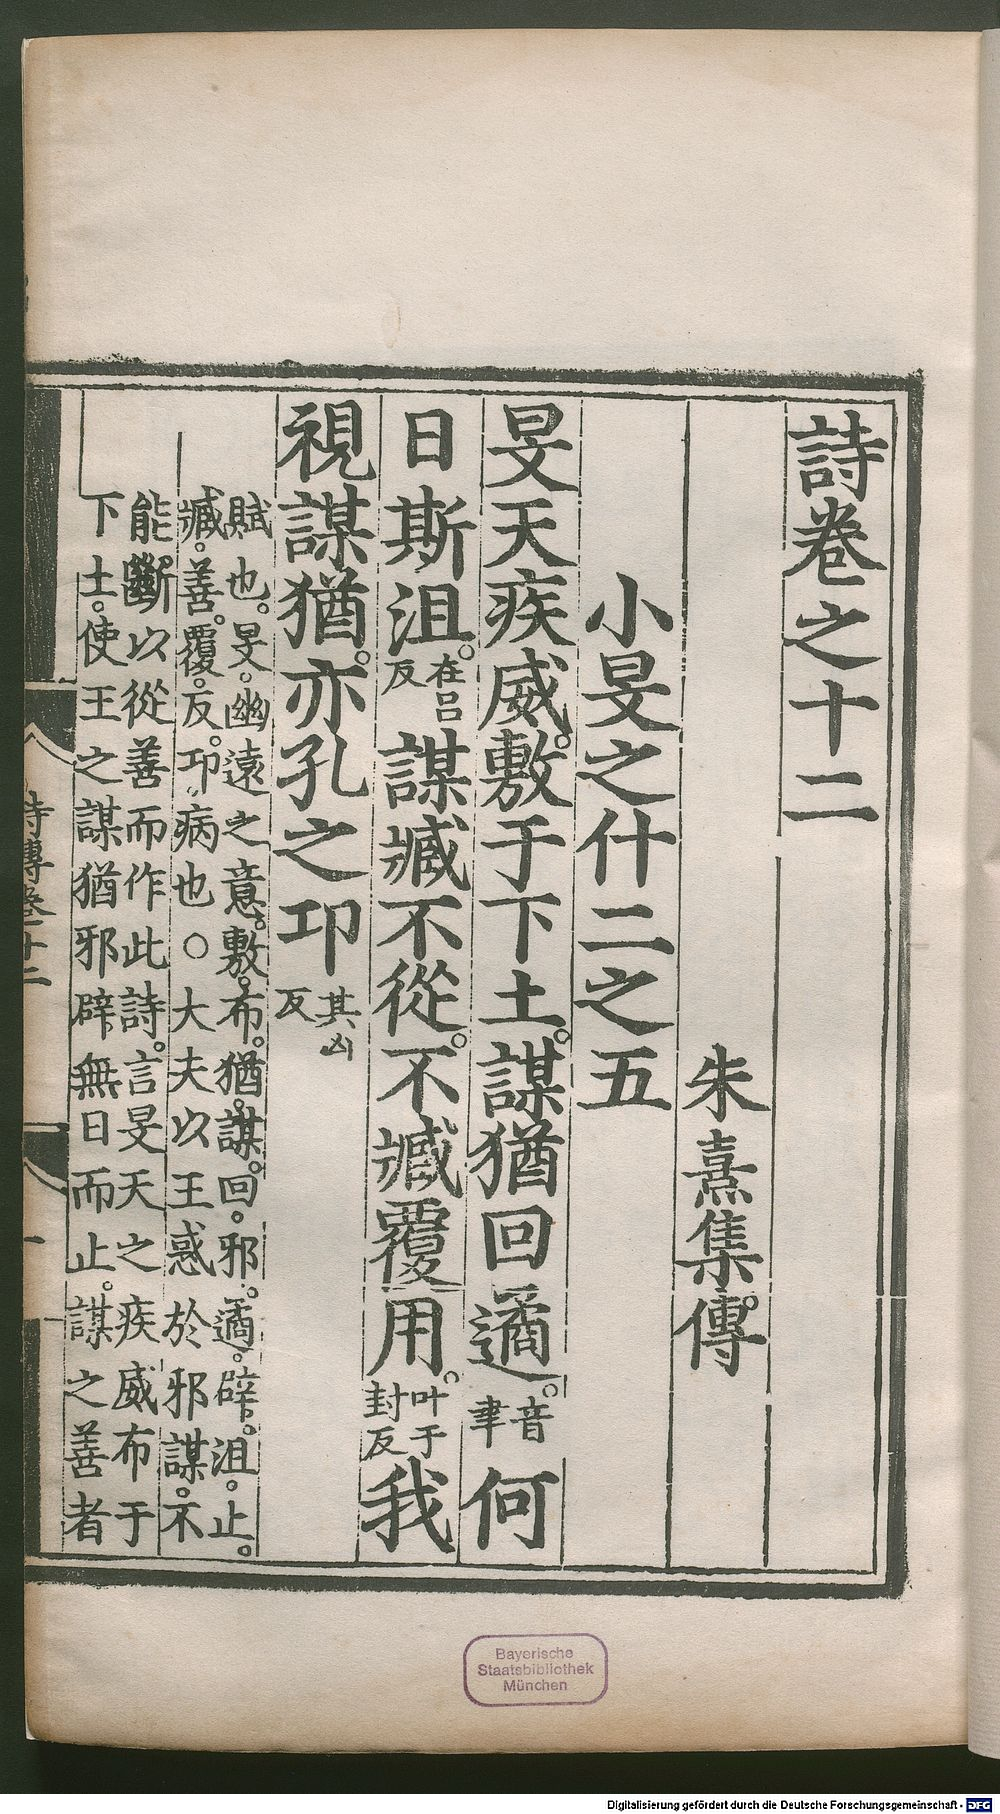 詩卷之十二
朱熹集傳
小旻之什二之五
旻天疾威。敷于下土。謀猶回遹。音聿何
日斯沮。在呂反謀臧不從。不臧覆用。叶于封反我
視謀猶。亦孔之卭其凶反
賦也。旻。幽遠之意。敷。布。猶。謀。回。邪。遹。辟。沮。止。
臧。善。覆。反。卭。病也○大夫以王惑於邪謀。不
能斷以從善而作此詩。言旻天之疾威布于
下土。使王之謀猶邪辟無日而止。謀之善者
詩傳卷十二
一
Bayerische
Staatsbibliothek
München
Digitalisierung gefördert durch die Deutsche Forschungsgemeinschaft - DFG